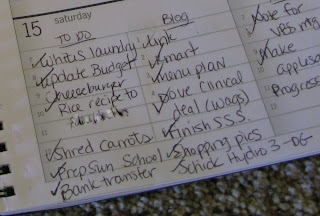 15 saturday
TO DO
Whitus laundry
Update Budget
Cheeseburger
Rice recipe to
Shred carrots
Prep Sun School
Bank transfer
Blog
Smart
Menu plan
Dove Clinical
deal (wags)
Finish S.S.S.
Shopping pics
Schick Hydro 3 - DG
Vote for
VBS mtg
Make
Progress